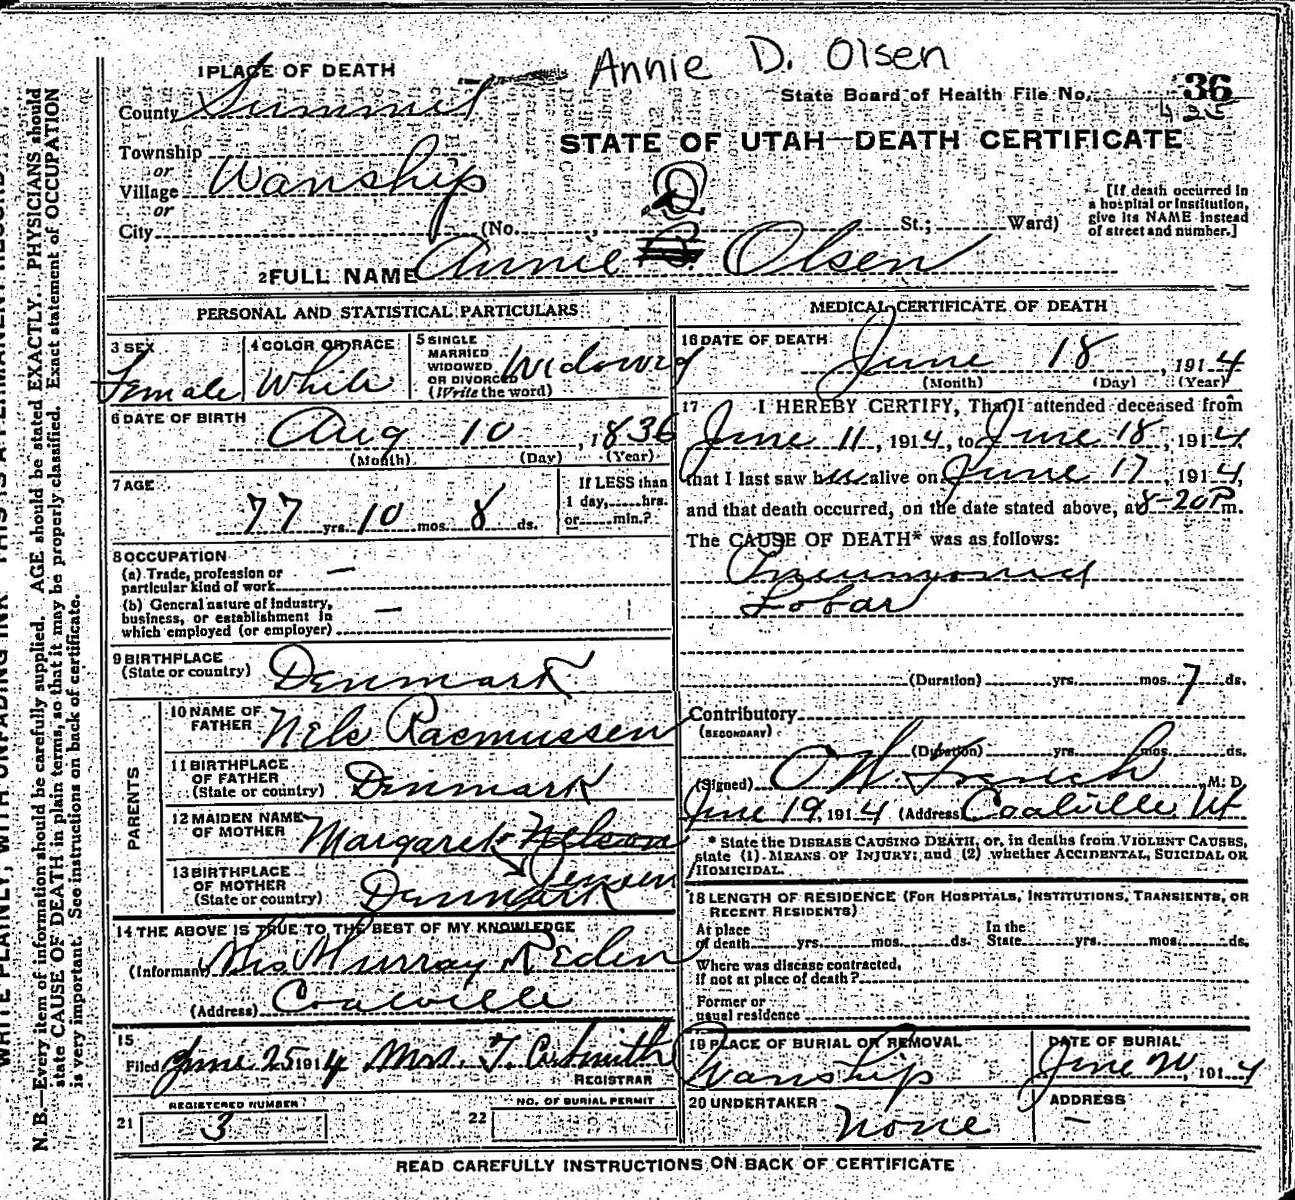 Annie D. Olsen
1 PLACE OF DEATH
County Summit
State Board of Health File No. 36
425
STATE OF UTAH—DEATH CERTIFICATE
Township
or
Village Wanship
or
City (No. St.; Ward)
[If death occurred in a hospital or institution, give its NAME instead of street and number.]
D
2 FULL NAME Annie B. Olsen
PERSONAL AND STATISTICAL PARTICULARS
3 SEX Female
4 COLOR OR RACE White
5 SINGLE MARRIED WIDOWED OR DIVORCED (Write the word) Widowed
6 DATE OF BIRTH Aug 10, 1836
(Month) (Day) (Year)
7 AGE 77 yrs. 10 mos. 8 ds.
If LESS than 1 day, hrs. or min.?
8 OCCUPATION
(a) Trade, profession or particular kind of work —
(b) General nature of industry, business, or establishment in which employed (or employer) —
9 BIRTHPLACE (State or country) Denmark
PARENTS
10 NAME OF FATHER Nels Rasmussen
11 BIRTHPLACE OF FATHER (State or country) Denmark
12 MAIDEN NAME OF MOTHER Margaret Nelson
Jensen
13 BIRTHPLACE OF MOTHER (State or country) Denmark
14 THE ABOVE IS TRUE TO THE BEST OF MY KNOWLEDGE
(Informant) Mrs Murray Reden
(Address) Coalville
15
Filed June 25 1914 Mrs. T. Smith
REGISTRAR
REGISTERED NUMBER
21 3
NO. OF BURIAL PERMIT
22
MEDICAL CERTIFICATE OF DEATH
16 DATE OF DEATH June 18, 1914
(Month) (Day) (Year)
17 I HEREBY CERTIFY, That I attended deceased from
June 11, 1914, to June 18, 1914
that I last saw her alive on June 17, 1914,
and that death occurred, on the date stated above, at 8-20 P.m.
The CAUSE OF DEATH* was as follows:
Pneumonia
Lobar
(Duration) yrs. mos. 7 ds.
Contributory
(SECONDARY)
(Duration) yrs. mos. ds.
(Signed) O W French M. D.
June 19, 1914 (Address) Coalville Ut
* State the DISEASE CAUSING DEATH, or, in deaths from VIOLENT CAUSES,
state (1) MEANS OF INJURY; and (2) whether ACCIDENTAL, SUICIDAL OR
HOMICIDAL.
18 LENGTH OF RESIDENCE (FOR HOSPITALS, INSTITUTIONS, TRANSIENTS, OR
RECENT RESIDENTS)
At place of death yrs. mos. ds. In the State yrs. mos. ds.
Where was disease contracted,
if not at place of death?
Former or
usual residence
19 PLACE OF BURIAL OR REMOVAL Wanship
DATE OF BURIAL June 20, 1914
20 UNDERTAKER none
ADDRESS —
READ CAREFULLY INSTRUCTIONS ON BACK OF CERTIFICATE
N. B.—Every item of information should be carefully supplied. AGE should be stated EXACTLY. PHYSICIANS should
state CAUSE OF DEATH in plain terms, so that it may be properly classified. Exact statement of OCCUPATION
is very important. See instructions on back of certificate.